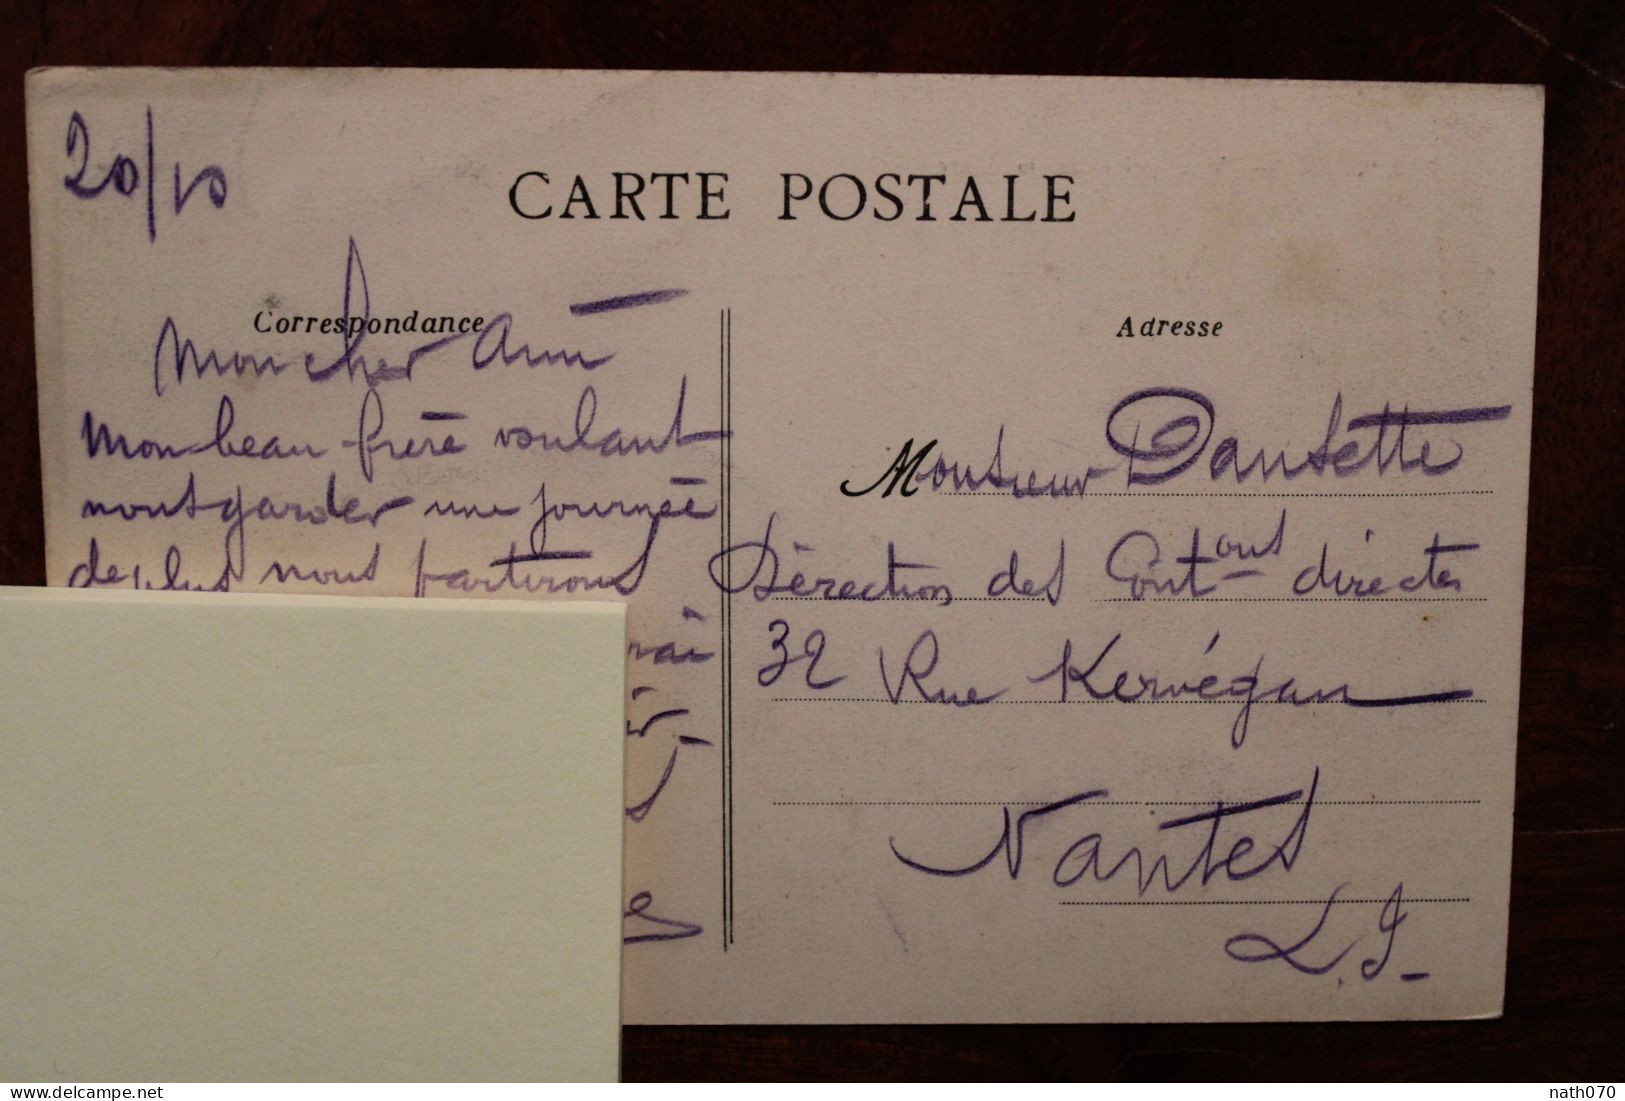 20/10
CARTE POSTALE
Correspondance
Adresse
Mon cher Ami
Mon beau-frère voulant
nous garder une journée
de plus nous partirons
rai
Monsieur Dansette
Direction des Cont^ons directes
32 Rue Kervégan
Nantes
L. I.
nath070